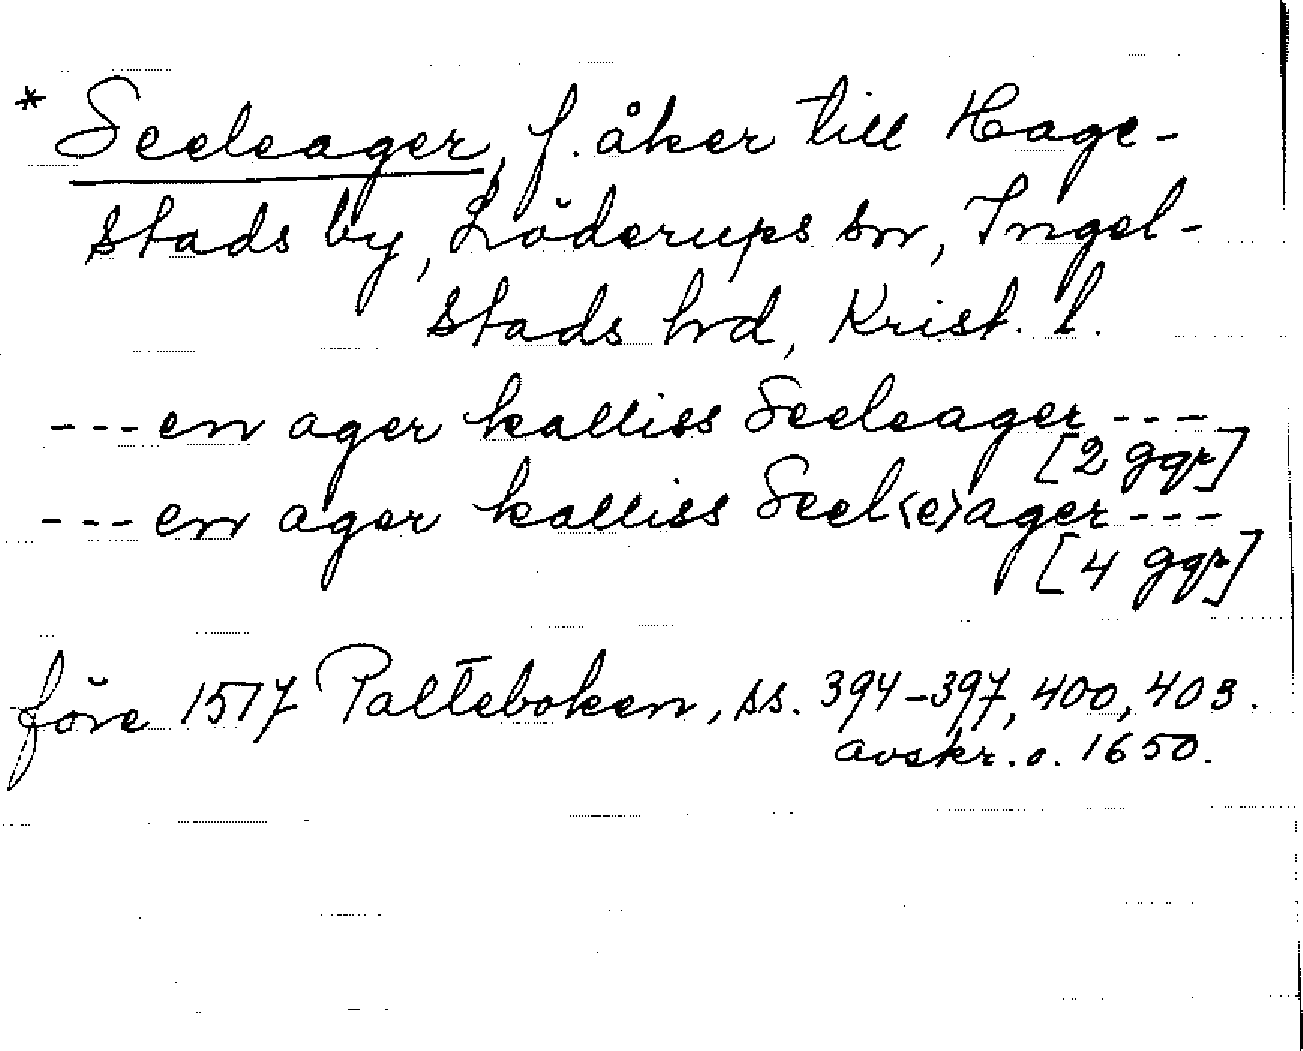 * Seeleager, f. åker till Hage-
stads by, Löderups sn, Ingel-
stads hrd, Krist. l.
---en ager kalliss Seeleager---
[2 ggr]
---en ager kalliss Seel<e>ager---
[4 ggr]
före 1517 Palteboken, ss. 394-397, 400, 403.
avskr. o. 1650.